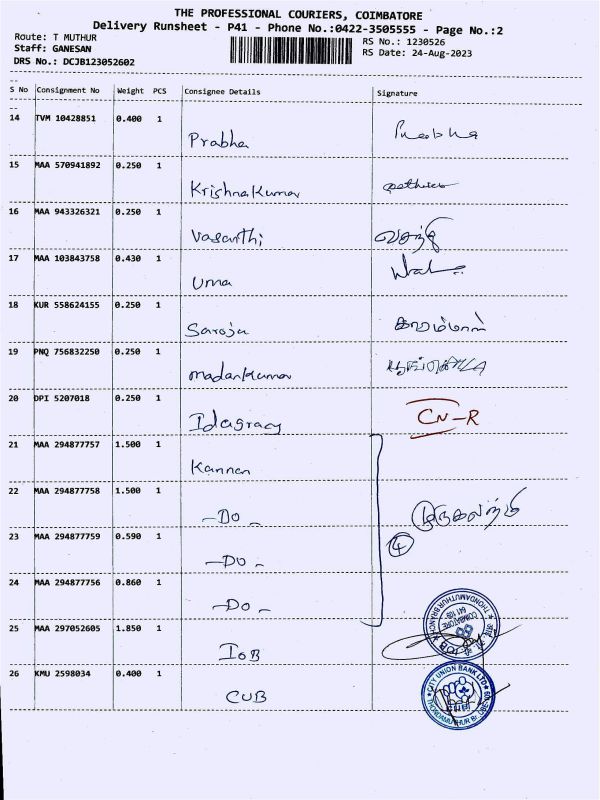 THE PROFESSIONAL COURIERS, COIMBATORE
Delivery Runsheet - P41 - Phone No.:0422-3505555 - Page No.:2
Route: T MUTHUR
Staff: GANESAN
DRS No.: DCJB123052602
RS No.: 1230526
RS Date: 24-Aug-2023
S No Consignment No Weight PCS Consignee Details Signature
14 TVM 10428851 0.400 1 Prabha Prabha
15 MAA 570941892 0.250 1 Krishnakumar
16 MAA 943326321 0.250 1 Vasanthi வசந்தி
17 MAA 103843758 0.430 1 Uma
18 KUR 558624155 0.250 1 Saroja
19 PNQ 756832250 0.250 1 madankumar
20 DPI 5207018 0.250 1 Idagracy CN-R
21 MAA 294877757 1.500 1 Kannan
22 MAA 294877758 1.500 1 -Do-
23 MAA 294877759 0.590 1 -Do- 4
24 MAA 294877756 0.860 1 -Do-
25 MAA 297052605 1.850 1 IOB
THONDAMUTHUR BRANCH
COIMBATORE
641 109
26 KMU 2598034 0.400 1 CUB
CITY UNION BANK LTD